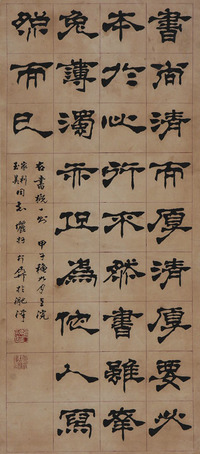 書尚清而厚清厚要必
本於心行不然書雖幸
免薄濁亦但為他人寫
照而已
右書概一則 甲子穐九月上浣
同志